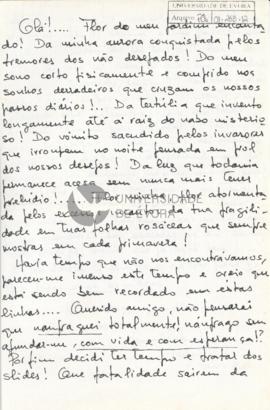 UNIVERSIDADE DE ÉVORA
Olá!..... Flor do meu jardim encanta
do! Da minha aurora conquistada pelos
tremores dos não desejados! Do meu
sono curto fisicamente e comprido nos
sonhos derradeiros que cruzam os nossos
passos diários!.. Da tertúlia que invento
longamente até à raiz do nabo misterio
so! Do vómito sacudido pelos invasores
que irrompem na noite pensada em prol
dos nossos desejos! Da luz que todavia
permanece acesa sem nunca mais teres
prelúdio!... Flor minha, flor atormenta
da pelos da tua fragili
dade em tuas folhas rosáceas que sempre
mostras em cada primavera!
Havia tempo que não nos encontrávamos,
pareceu-me imenso este tempo e creio que
está sendo bem recordado em estas
linhas.... Querido amigo, não pensarás
que naufraguei totalmente! naufrago sem
afundar-me, com vida e com esperança!?
Por fim decidi ter tempo e tratar dos
slides! Que fatalidade saírem da
UNIVERSIDADE
DE ÉVORA